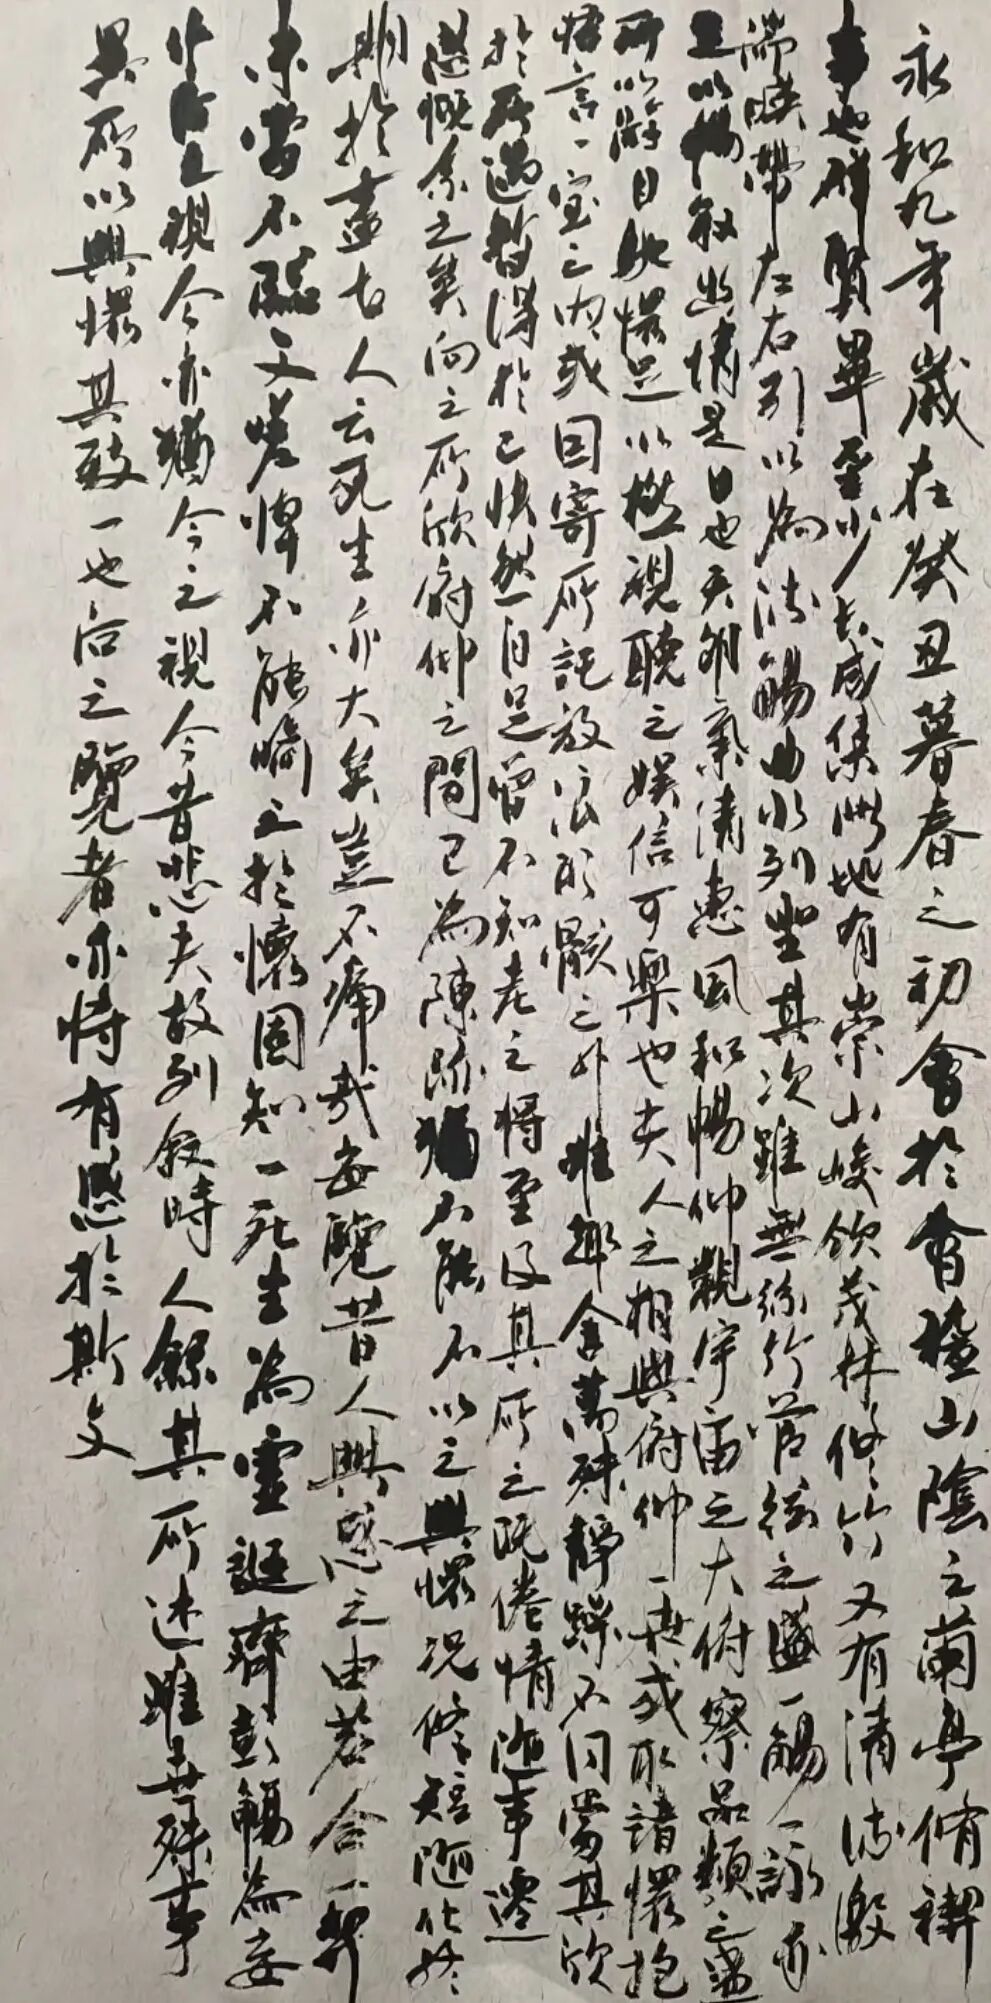 永和九年歲在癸丑暮春之初會於會稽山陰之蘭亭脩禊
事也群賢畢至少長咸集此地有崇山峻領茂林修竹又有清流激
湍暎帶左右引以為流觴曲水列坐其次雖無絲竹管絃之盛一觴一詠亦
足以暢敘幽情是日也天朗氣清惠風和暢仰觀宇宙之大俯察品類之盛
所以遊目騁懷足以極視聽之娛信可樂也夫人之相與俯仰一世或取諸懷抱
悟言一室之內或因寄所託放浪形骸之外雖趣舍萬殊靜躁不同當其欣
於所遇暫得於己快然自足曾不知老之將至及其所之既倦情隨事遷
感慨係之矣向之所欣俯仰之間已為陳跡猶不能不以之興懷況修短隨化終
期於盡古人云死生亦大矣豈不痛哉每覽昔人興感之由若合一契
未嘗不臨文嗟悼不能喻之於懷固知一死生為虛誕齊彭觴為妄
作後之視今亦猶今之視今昔悲夫故列敘時人錄其所述雖世殊事
異所以興懷其致一也後之覽者亦將有感於斯文